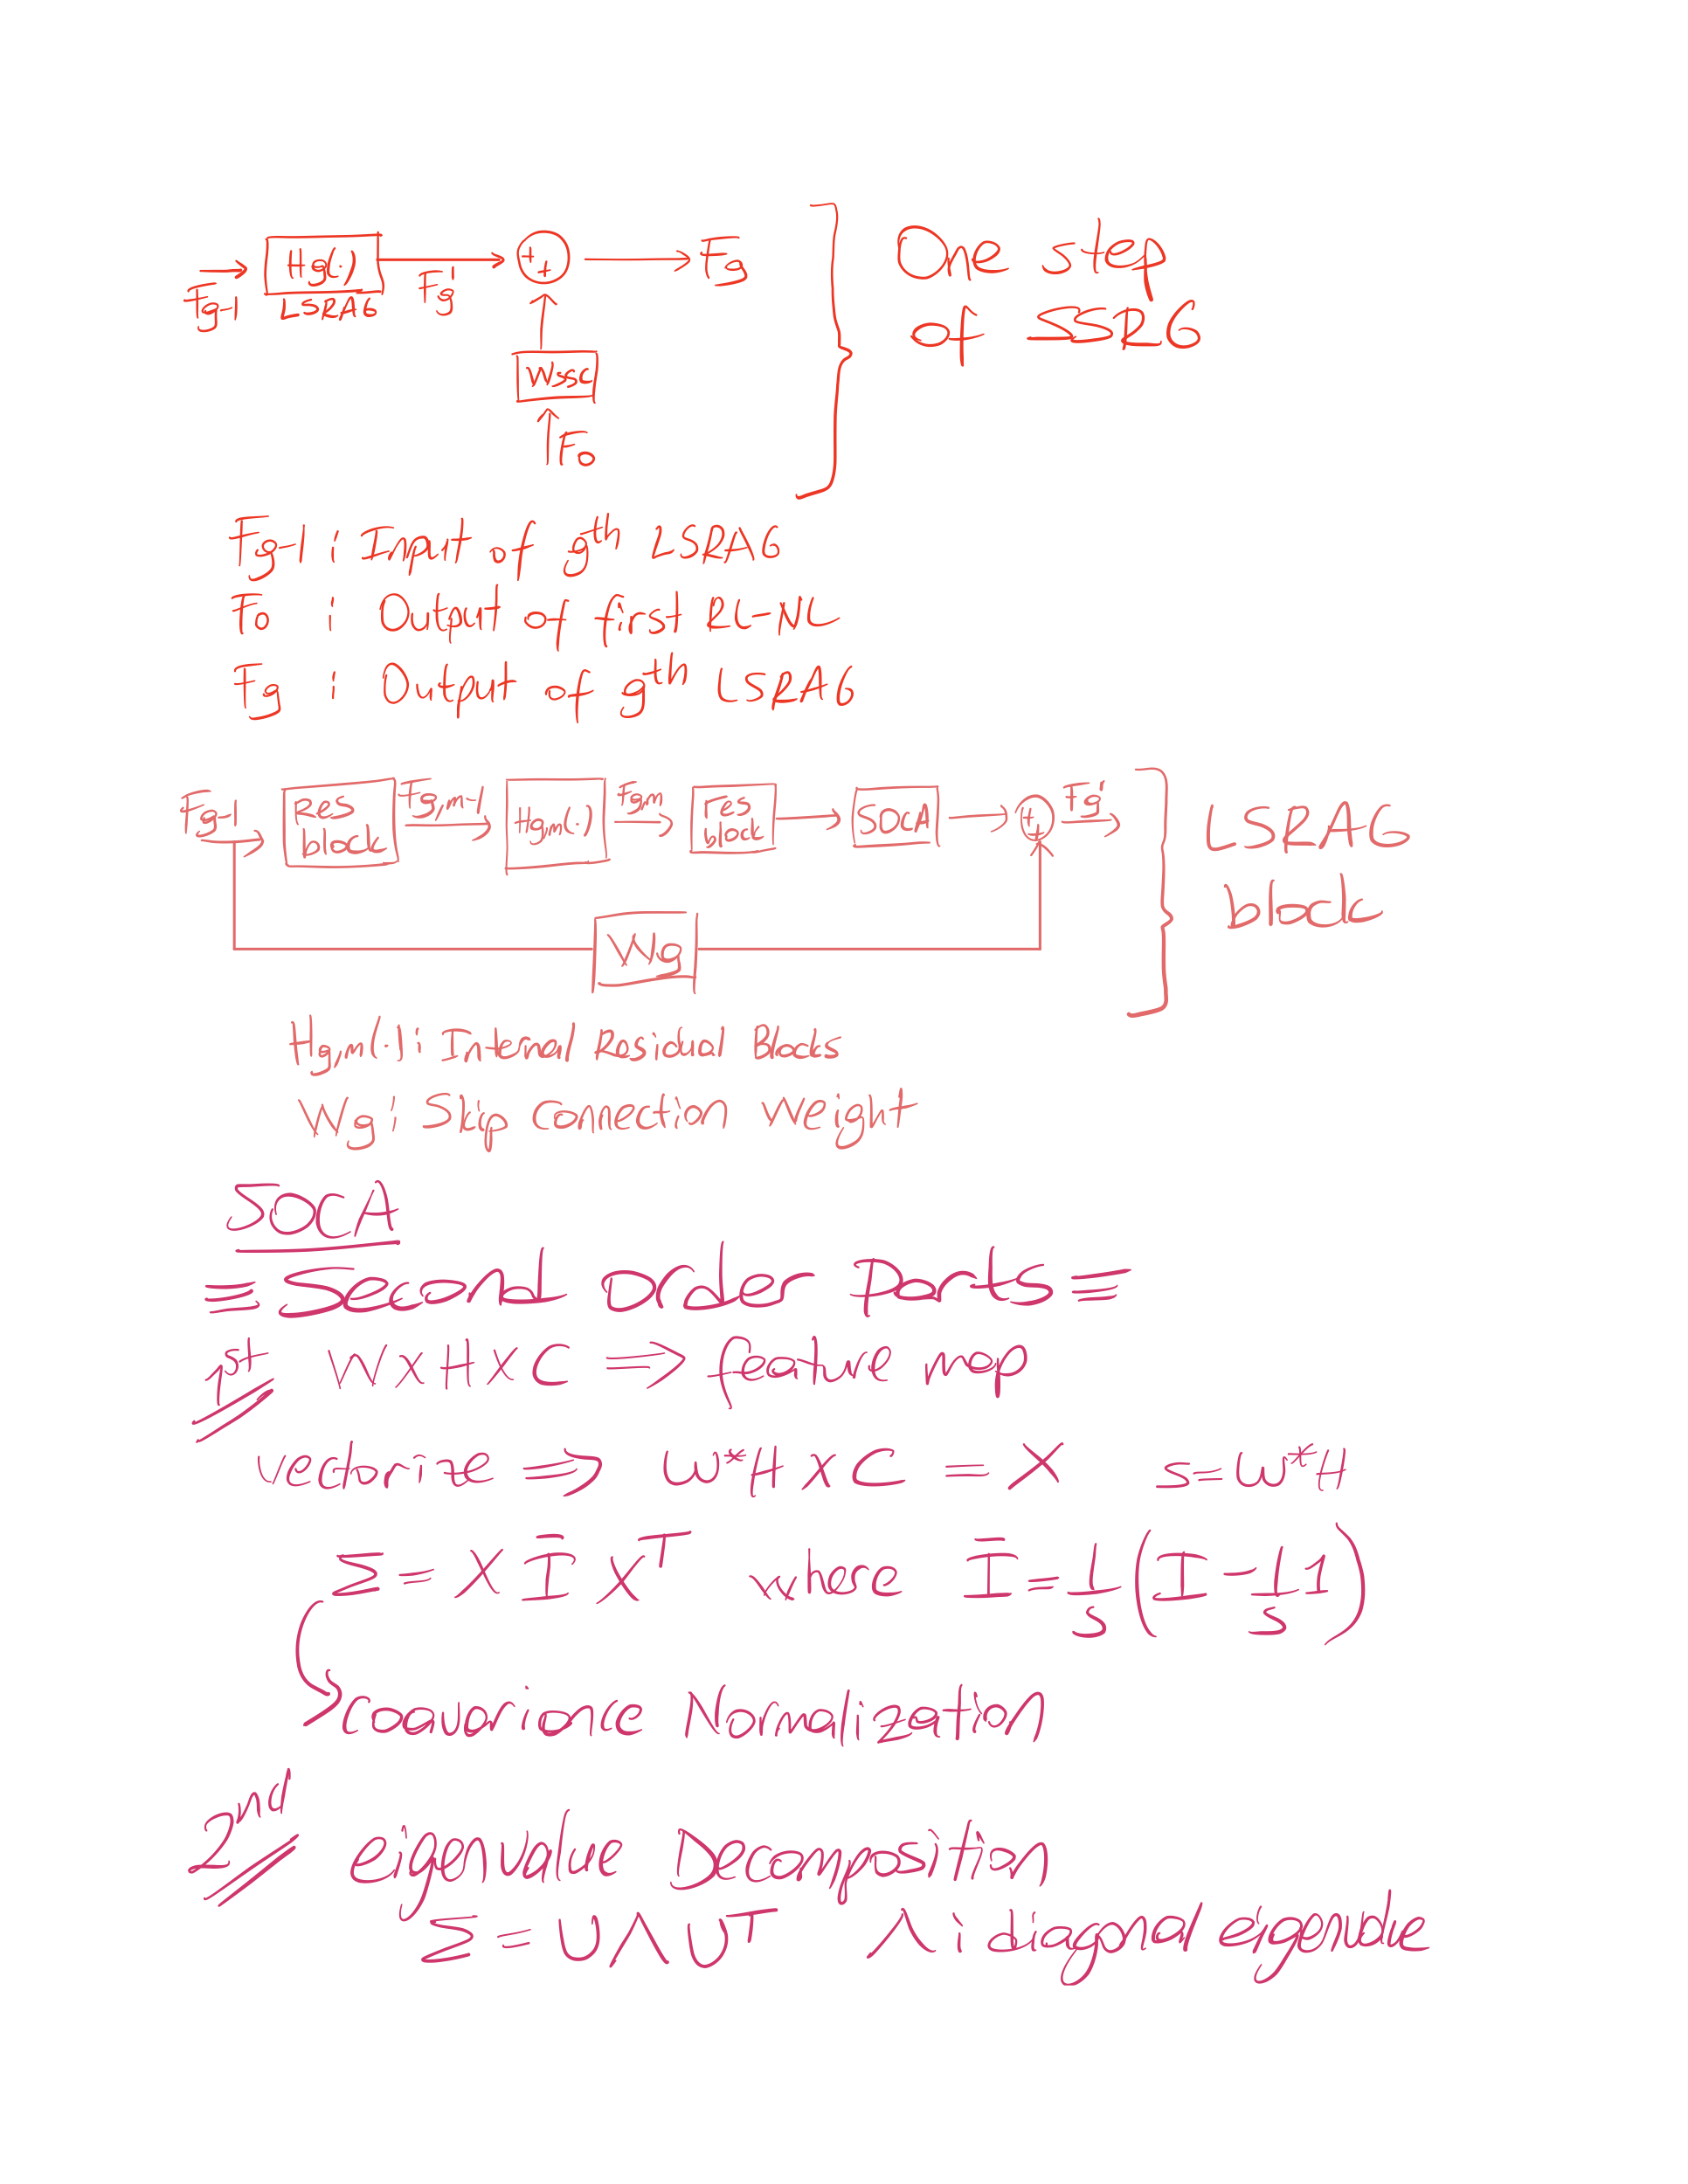 Fg-1 Hg(.) Fg' + + Fg
LSRAG
Wssc
Fo
One step
of SSRG
Fg-1 : Input of gth LSRAG
Fo : Output of first RL-NL
Fg : Output of gth LSRAG
Fg-1 Res block Fg,m-1 Hg,m(.) Fg,m res block SOCA + + Fg'
Wg
LSRAG
block
Hg,m(.) : Internal Residual Blocks
Wg : Skip Connection Weight
SOCA
≡ Second Order Parts ≡
1st W x H x C ⇒ feature map
vectorize ⇒ W*H x C = X s = W*H
Σ = X Ī X^T where Ī = 1/s (I - 1/s 1)
Coavariance Normalization
2nd eigenvalue Decomposition
Σ = U Λ U^T Λ : diagonal eigenvalue